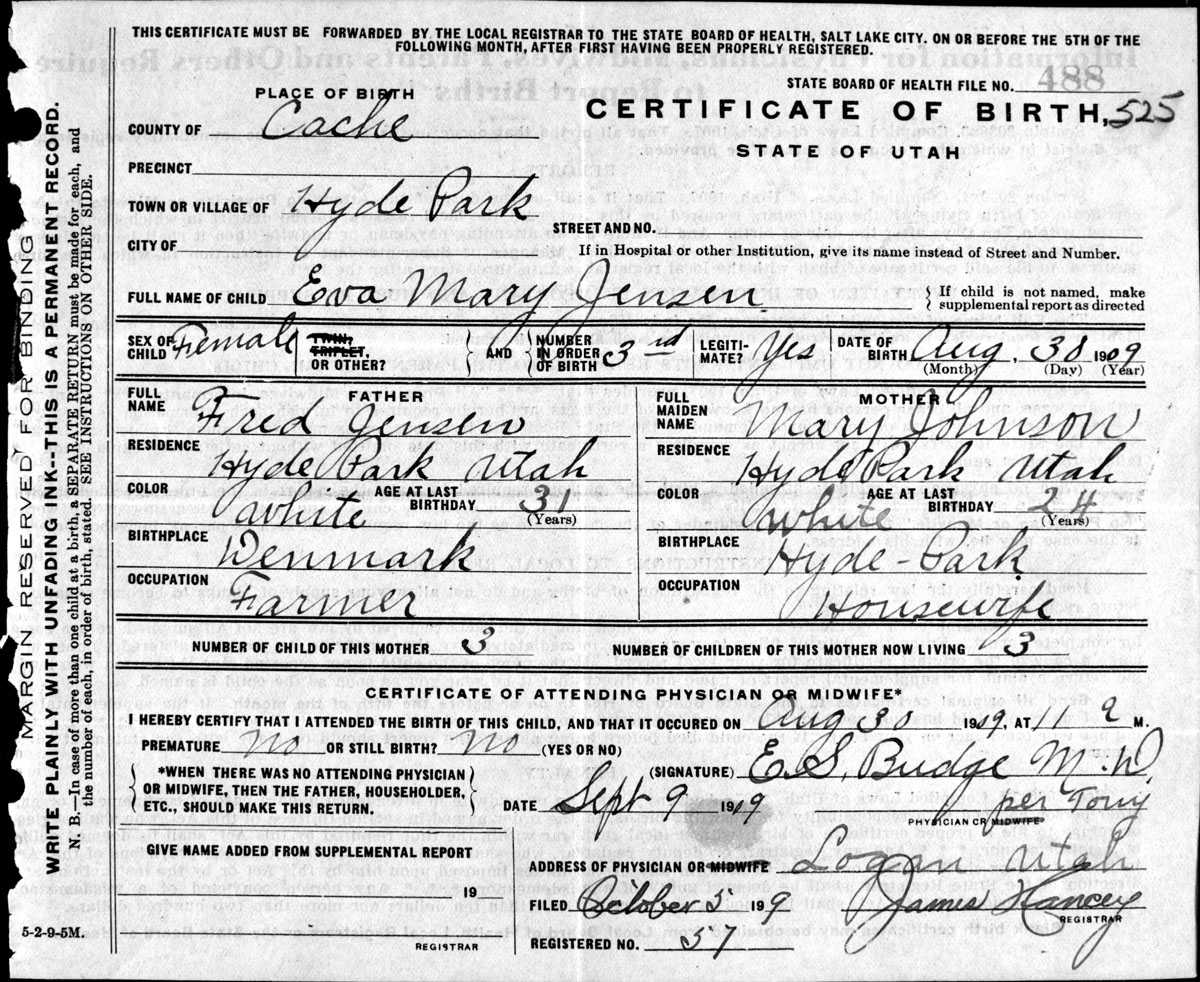 THIS CERTIFICATE MUST BE FORWARDED BY THE LOCAL REGISTRAR TO THE STATE BOARD OF HEALTH, SALT LAKE CITY. ON OR BEFORE THE 5TH OF THE
FOLLOWING MONTH, AFTER FIRST HAVING BEEN PROPERLY REGISTERED.
STATE BOARD OF HEALTH FILE NO. 488
PLACE OF BIRTH
CERTIFICATE OF BIRTH, 525
COUNTY OF Cache
STATE OF UTAH
PRECINCT
TOWN OR VILLAGE OF Hyde Park
STREET AND NO.
CITY OF
If in Hospital or other Institution, give its name instead of Street and Number.
FULL NAME OF CHILD Eva Mary Jensen { If child is not named, make
supplemental report as directed
SEX OF CHILD Female TWIN, TRIPLET, OR OTHER? { AND } NUMBER IN ORDER OF BIRTH 3rd LEGITI-MATE? Yes DATE OF BIRTH Aug. 30 1909
(Month) (Day) (Year)
FATHER MOTHER
FULL NAME Fred Jensen FULL MAIDEN NAME Mary Johnson
RESIDENCE Hyde Park Utah RESIDENCE Hyde Park Utah
COLOR White AGE AT LAST BIRTHDAY 31 (Years) COLOR White AGE AT LAST BIRTHDAY 24 (Years)
BIRTHPLACE Denmark BIRTHPLACE Hyde-Park
OCCUPATION Farmer OCCUPATION Housewife
NUMBER OF CHILD OF THIS MOTHER 3 NUMBER OF CHILDREN OF THIS MOTHER NOW LIVING 3
CERTIFICATE OF ATTENDING PHYSICIAN OR MIDWIFE*
I HEREBY CERTIFY THAT I ATTENDED THE BIRTH OF THIS CHILD, AND THAT IT OCCURED ON Aug 30 1909, AT M.
PREMATURE No OR STILL BIRTH? No (YES OR NO)
{ *WHEN THERE WAS NO ATTENDING PHYSICIAN
OR MIDWIFE, THEN THE FATHER, HOUSEHOLDER,
ETC., SHOULD MAKE THIS RETURN. }
(SIGNATURE) E. S. Budge M.D.
per Tony
DATE Sept 9 1909
PHYSICIAN OR MIDWIFE
GIVE NAME ADDED FROM SUPPLEMENTAL REPORT
19
REGISTRAR
ADDRESS OF PHYSICIAN OR MIDWIFE Logan Utah
FILED October 2 1909 James Hancey
REGISTRAR
REGISTERED NO. 57
5-2-9-5M.
MARGIN RESERVED FOR BINDING
WRITE PLAINLY WITH UNFADING INK--THIS IS A PERMANENT RECORD.
N. B.—In case of more than one child at a birth, a SEPARATE RETURN must be made for each, and
the number of each, in order of birth, stated. SEE INSTRUCTIONS ON OTHER SIDE.